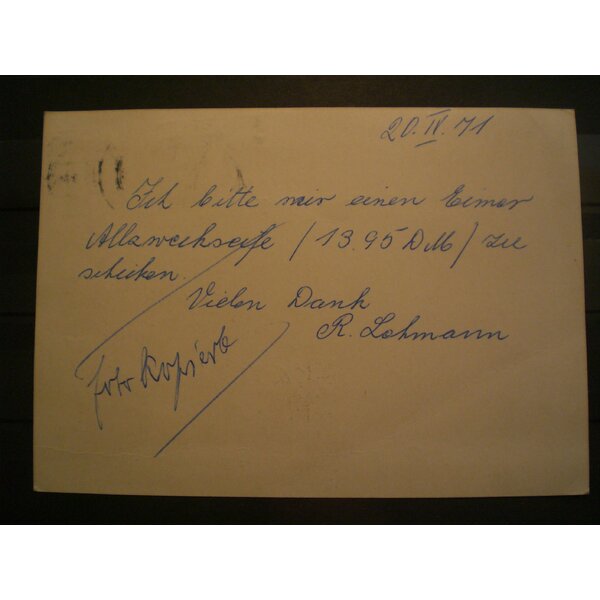 20.IV.71
Ich bitte mir einen Eimer
Allzweckseife /13.95 DM/ zu
schicken.
Vielen Dank
R. Lohmann
foto kopiert